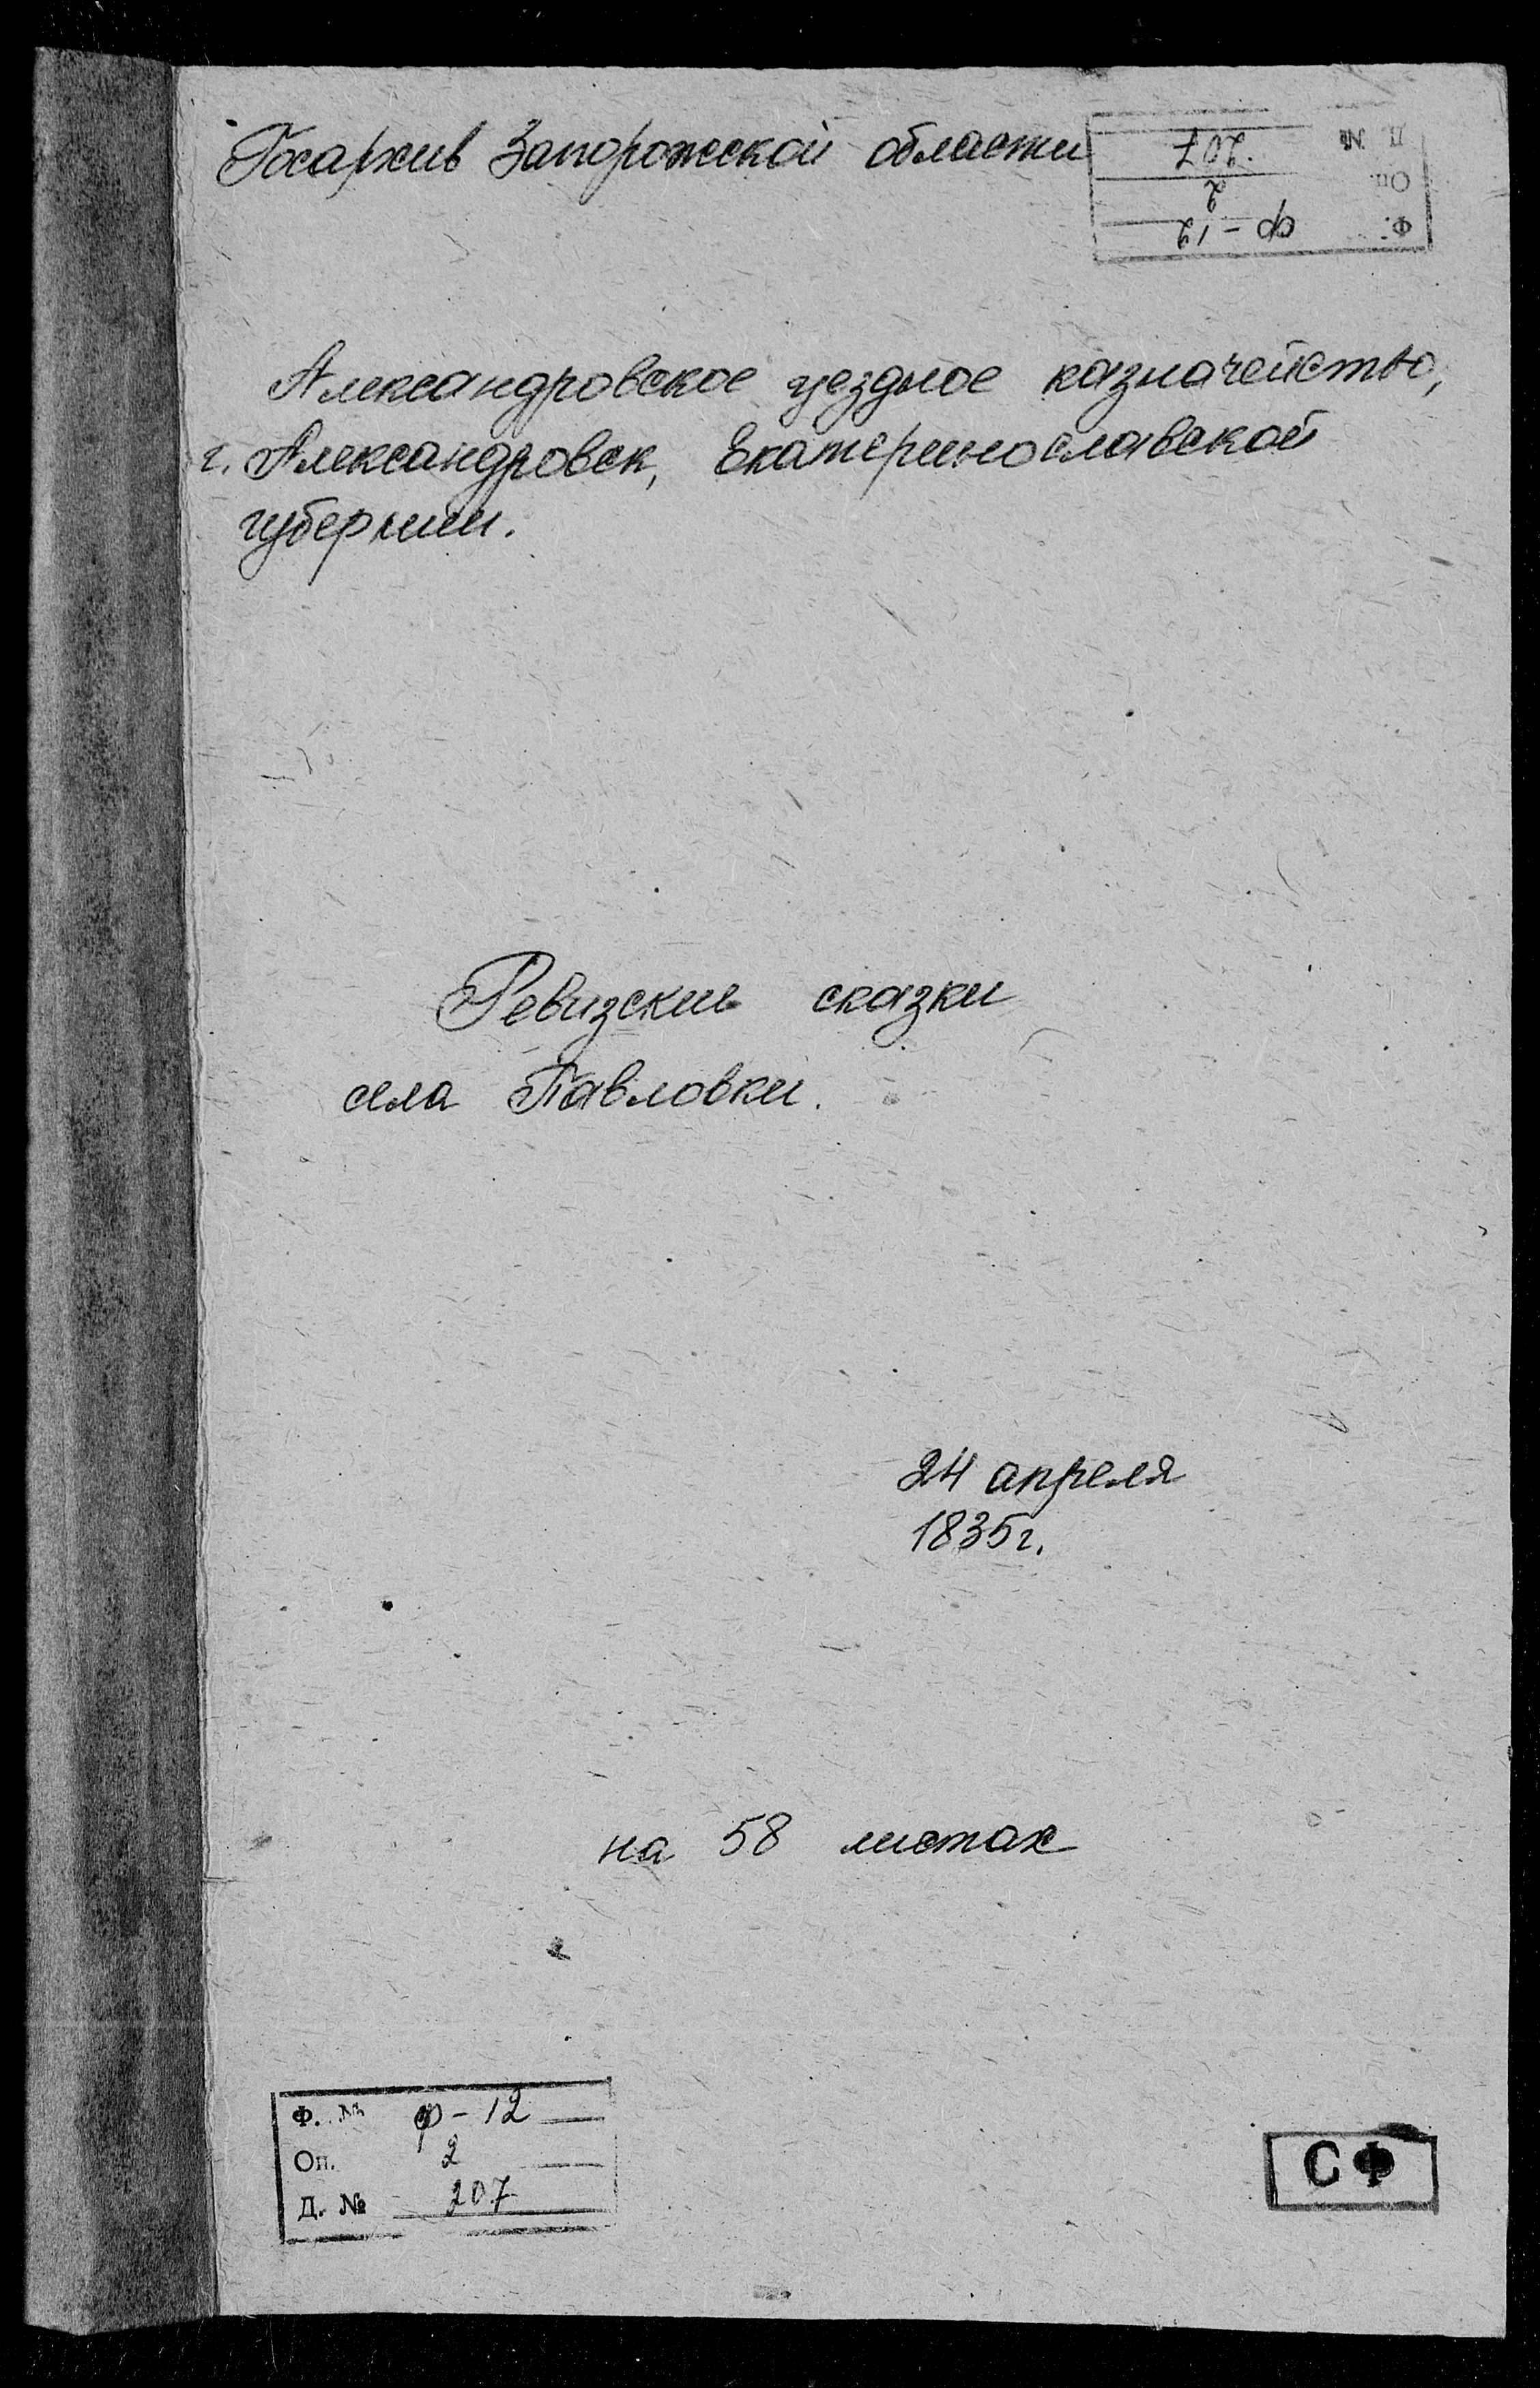 Госархив Запорожской области
Д. № 207
Оп. 2
Ф. ф-12
Александровское уездное казначейство,
г. Александровск, Екатеринославской
губернии.
Ревизские сказки
села Павловки.
24 апреля
1835г.
на 58 листах
Ф. № ф-12
Оп. 2
Д. № 207
СФ